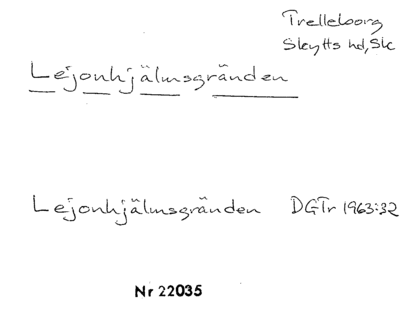 Trelleborg
Skytts hd, Sk
Lejonhjälmsgränden
Lejonhjälmsgränden DGTr 1963:32
Nr 22035